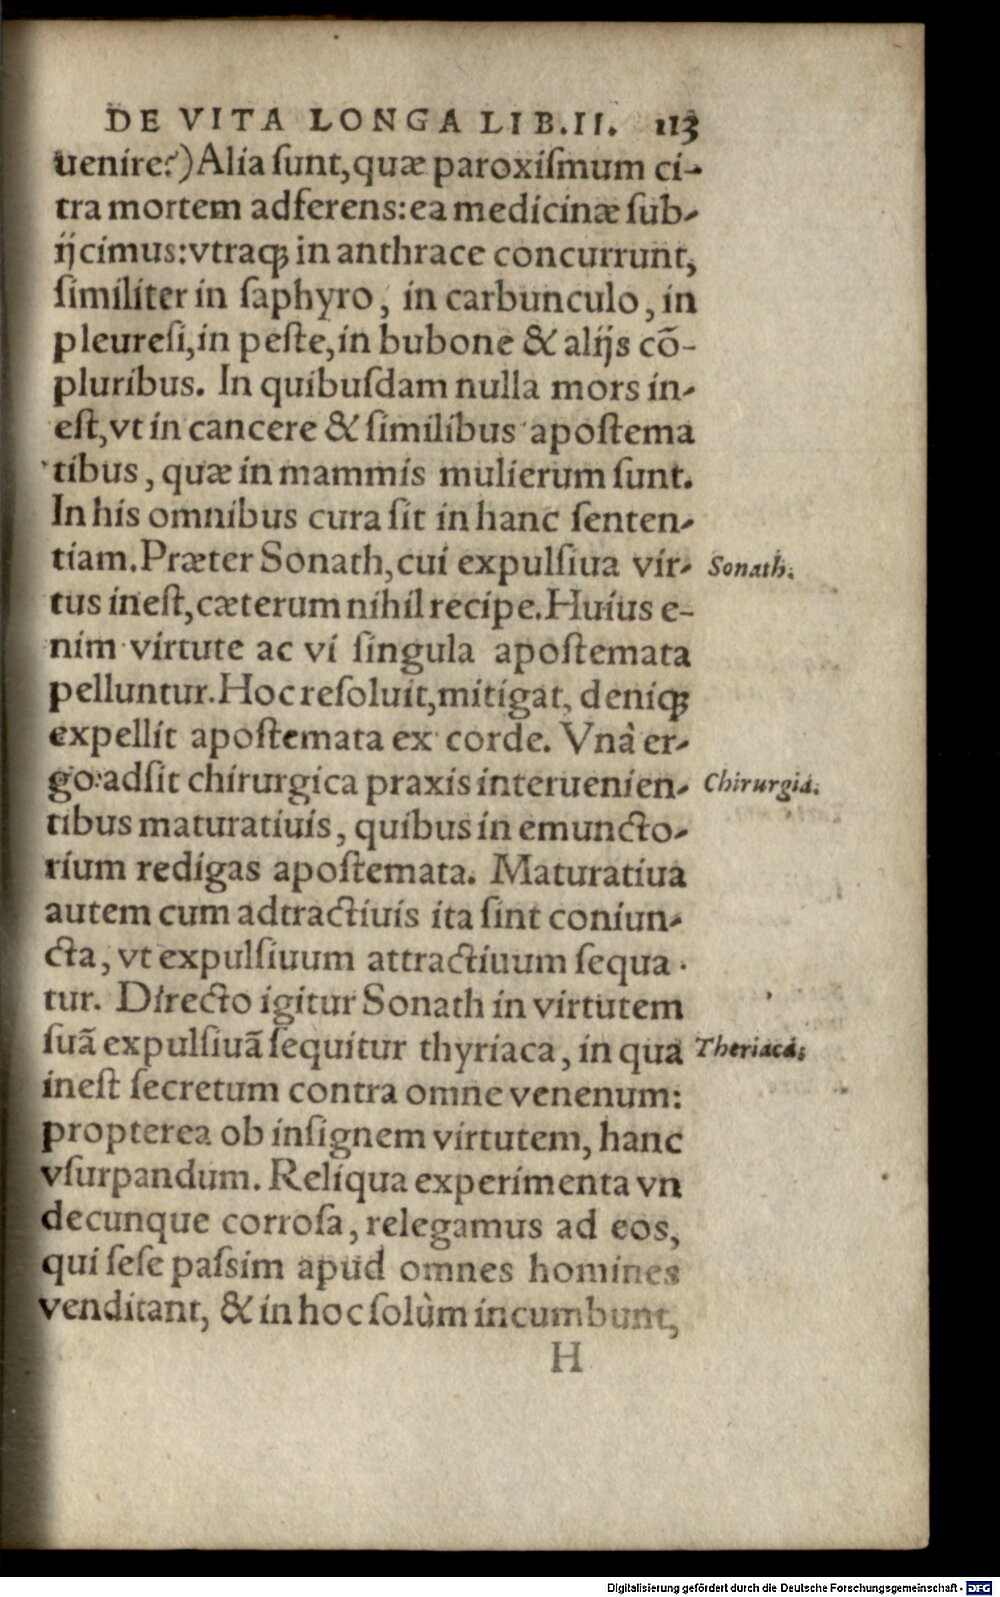 DE VITA LONGA LIB.II. 113
uenire?) Alia ſunt, quæ paroxiſmum ci-
tra mortem adferens: ea medicinæ ſub-
ijcimus: vtraqꝫ in anthrace concurrunt,
ſimiliter in ſaphyro, in carbunculo, in
pleureſi, in peſte, in bubone & alijs cõ-
pluribus. In quibuſdam nulla mors in-
eſt, vt in cancere & ſimilibus apoſtema
tibus, quæ in mammis mulierum ſunt.
In his omnibus cura ſit in hanc ſenten-
tiam. Præter Sonath, cui expulſiua vir- Sonath.
tus ineſt, cæterum nihil recipe. Huius e-
nim virtute ac vi ſingula apoſtemata
pelluntur. Hoc reſoluit, mitigat, deniqꝫ
expellit apoſtemata ex corde. Vnà er-
go adſit chirurgica praxis interuenien- Chirurgia.
tibus maturatiuis, quibus in emuncto-
rium redigas apoſtemata. Maturatiua
autem cum adtractiuis ita ſint coniun-
cta, vt expulſiuum attractiuum ſequa
tur. Directo igitur Sonath in virtutem
ſuã expulſiuã ſequitur thyriaca, in qua Theriaca.
ineſt ſecretum contra omne venenum:
propterea ob inſignem virtutem, hanc
vſurpandum. Reliqua experimenta vn
decunque corroſa, relegamus ad eos,
qui ſeſe paſsim apud omnes homines
venditant, & in hoc ſolùm incumbunt,
H
Digitalisierung gefördert durch die Deutsche Forschungsgemeinschaft - DFG